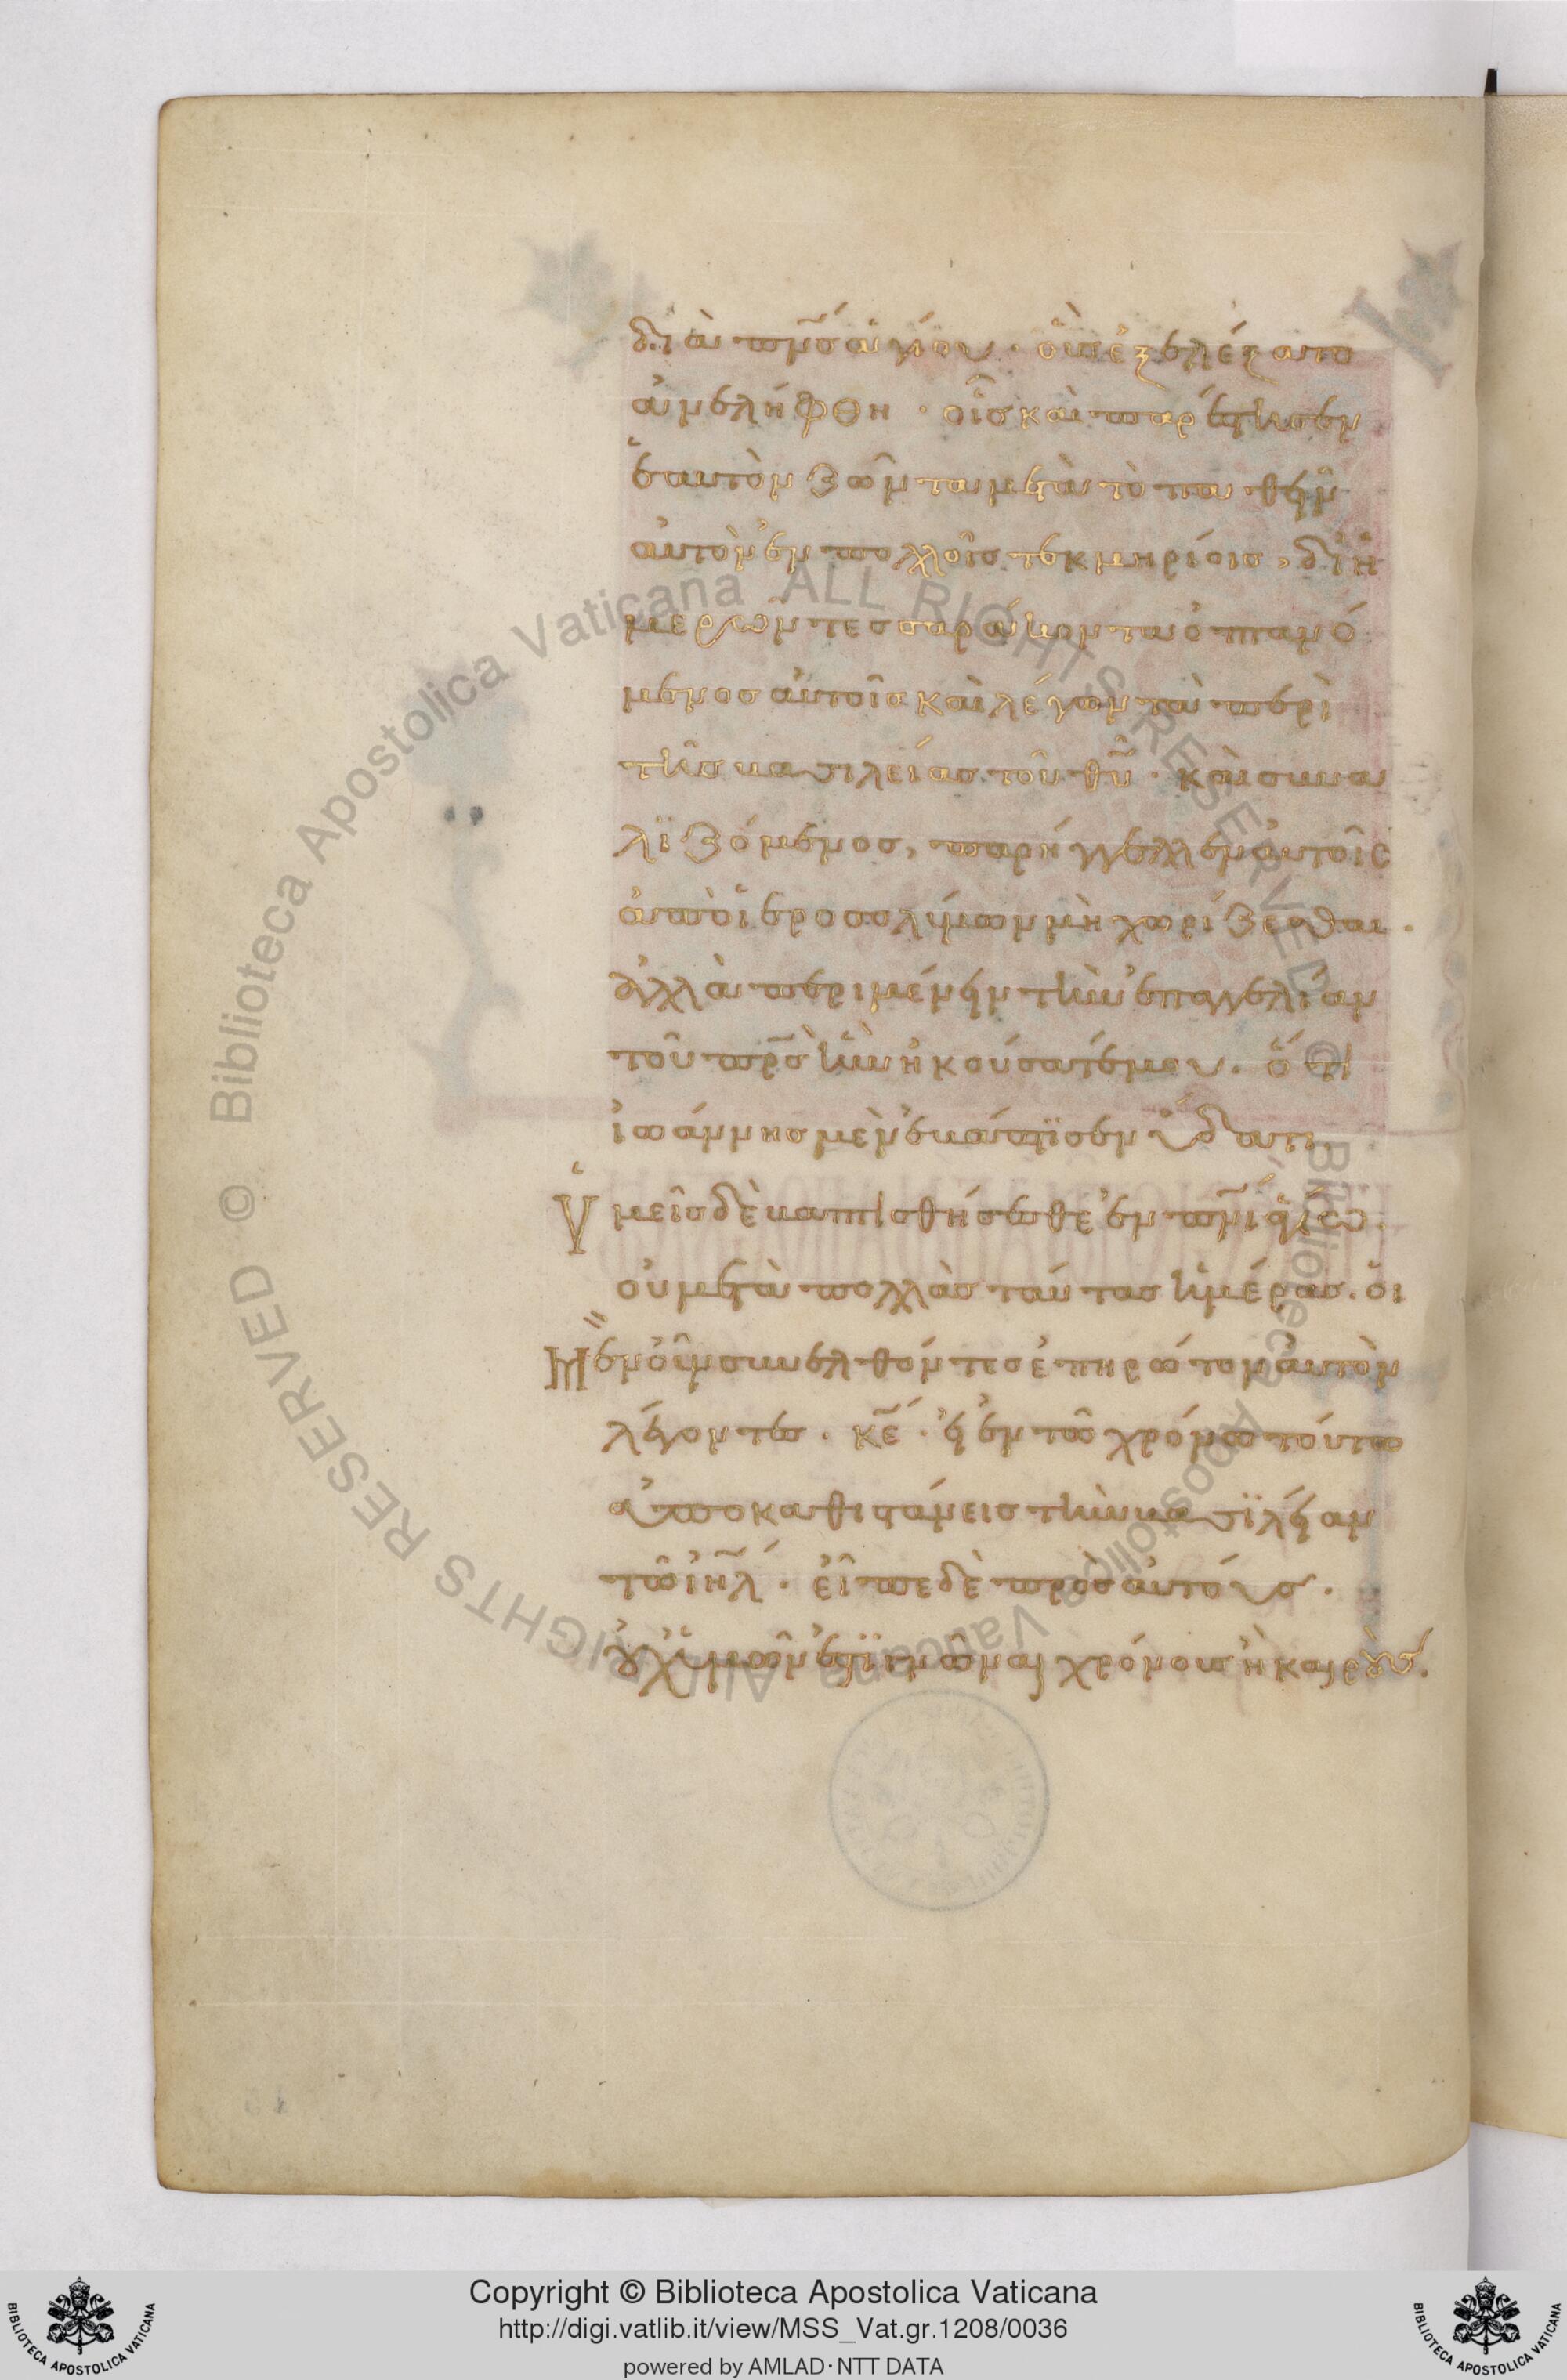 διὰ πν̅ς ἁγίου · οὓς ἐξελέξατο
ἀνελήφθη · οἷς καὶ παρέστησεν
ἑαυτὸν ζῶντα μετὰ τὸ παθεῖν
αὐτὸν ἐν πολλοῖς τεκμηρίοις, δι' ἡ
μερῶν τεσσαράκοντα ὀπτανό
μενος αὐτοῖς καὶ λέγων τὰ περὶ
τῆς βασιλείας τοῦ θυ̅ · καὶ συνα
λιζόμενος, παρήγγελλεν αὐτοῖς
ἀπὸ ἱεροσολύμων μὴ χωρίζεσθαι ·
ἀλλὰ περιμένειν τὴν ἐπαγγελίαν
τοῦ πρ̅ς ἣν ἠκούσατέ μου · ὅτι
ἰωάννης μὲν ἐβάπτισεν ὕδατι,
Ὑμεῖς δὲ βαπτισθήσεσθε ἐν πν̅ι ἁγίω ·
οὐ μετὰ πολλὰς ταύτας ἡμέρας · οἱ
Μὲν οὖν συνελθόντες ἐπηρώτον αὐτὸν
λέγοντες · κε̅ · εἰ ἐν τῶ χρόνω τούτω
ἀποκαθιστάνεις τὴν βασιλείαν
τῶ ιη̅λ · εἶπε δὲ πρὸς αὐτούς ·
οὐχ ὑμῶν ἐστὶ γνῶναι χρόνους ἢ καιρούς ·
Biblioteca Apostolica Vaticana ALL RIGHTS RESERVED ©
Biblioteca Apostolica Vaticana ALL RIGHTS RESERVED ©
Copyright © Biblioteca Apostolica Vaticana
http://digi.vatlib.it/view/MSS_Vat.gr.1208/0036
powered by AMLAD·NTT DATA
BIBLIOTECA APOSTOLICA VATICANA
BIBLIOTECA APOSTOLICA VATICANA